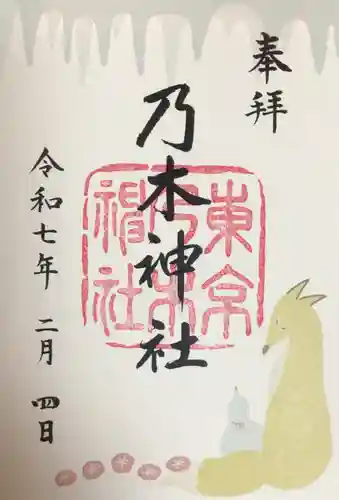 奉拝
乃木神社
東京乃木神社
令和七年 二月 四日